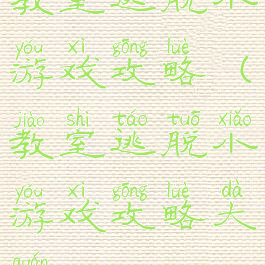 教室逃脱小
yóu xì gōng lüè
游戏攻略（
jiào shì táo tuō xiǎo
教室逃脱小
yóu xì gōng lüè dà
游戏攻略大
quán